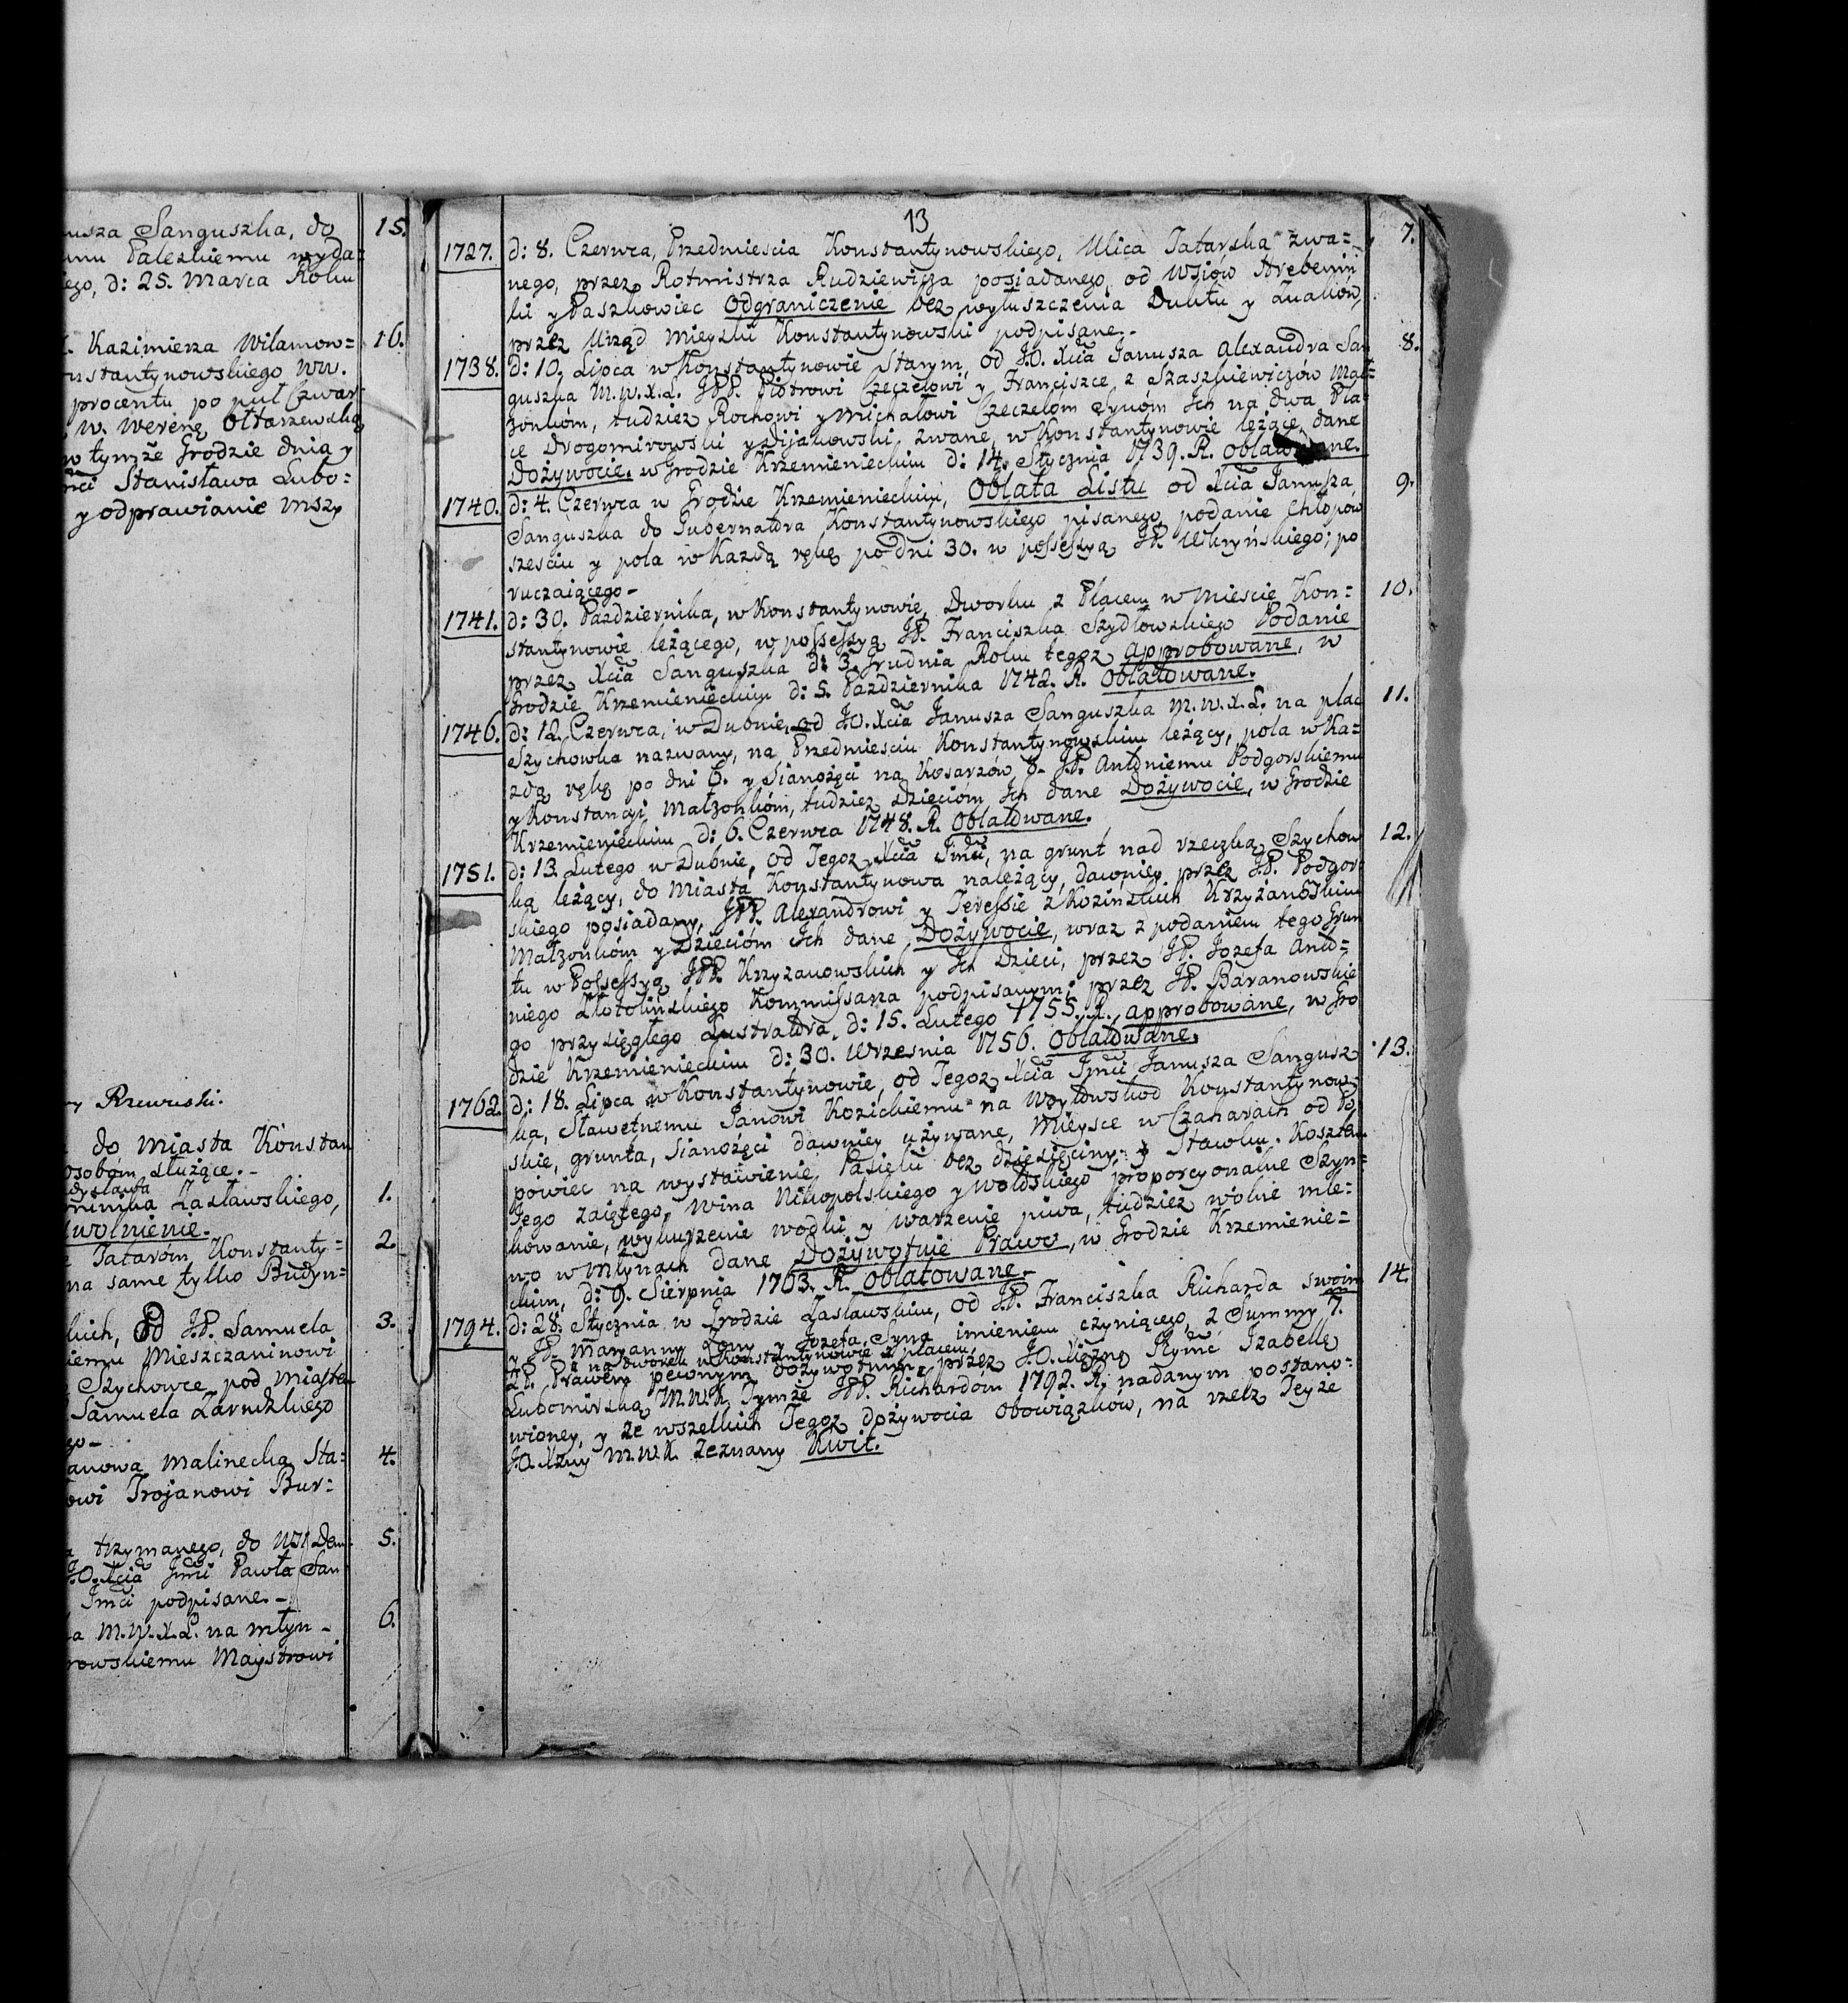 nusza Sanguszka, do 15.
ego, d: 25. Marca Roku
Kazimierza Wilamow= 16.
nstantynowskiego WW.
procentu po puł Czwar
w. Werenę Ołtarzewską
w tymże Grodzie dnia y
Stanisława Lubo:
y odprawianie Mszy
Rzewuski.
do Miasta Konstan
osobom służące.-
dysława
minika Zasławskiego, 1.
uwolnienie.
Tatarom Konstanty= 2.
na same tylko Budyn=
kich, Od JP. Samuela 3.
iemu Mieszczaninowi
Szychowce pod miastem
Samuela Zarudzkiego
go-
anowa Malinecką Sta: 4.
owi Trojanowi Bur:
trzymanego, do Wsi Dem 5.
J.O. Xcia Jmci Pawła San
Jmci podpisane.-
a M.W.X.L. na młyn- 6.
rowskiemu Maystrowi
13
1727. d: 8. Czerwca, Przedmiescia Konstantynowskiego, Ulica Tatarska zwa= 7.
nego, przez Rotmistrza Rudziewicza posiadanego, od Wsiów Hrebenin
ki y Paszkowiec Odgraniczenie bez wyłuszczenia Duktu y znaków,
przez Urząd Mieyski Konstantynowski podpisane.-
1738. d: 10. Lipca w Konstantynowie Starym, od J.O. Xcia Janusza Alexandra San 8.
guszka M.W.X.L. JPP. Piotrowi Czeczelowi y Franciszce z Szaszkiewiczów Mał=
żonkóm, tudzież Rochowi y Michałowi Czeczelóm Synóm Ich na dwa Pla=
ce Drogomirowski y Dijakowski zwane, w Konstantynowie leżące, dane
Dożywocie, w Grodzie Krzemienieckim d: 14. Stycznia 1739. R. oblatowane.
1740. d: 4. Czerwca w Grodzie Krzemienieckim, Oblata Listu od Xcia Janusza 9.
Sanguszka do Gubernatora Konstantynowskiego pisanego, podanie Chłopów
szesciu y pola w Każdą rękę po dni 30. w possessyą JP. Ukryńskiego; po
ruczaiącego-
1741. d: 30. Pazdziernika, w Konstantynowie, Dworku z Placem w Miescie Kon= 10.
stantynowie leżącego, w possessyą JP. Franciszka Szydłowskiego Podanie
przez Xcia Sanguszka d: 3. Grudnia Roku tegoż approbowane, w
Grodzie Krzemienieckim d: 5. Pazdziernika 1742. R. Oblatowane.
1746. d: 12. Czerwca, w Dubnie, od J.O. Xcia Janusza Sanguszka M.W.X.L. na plac 11.
Szychowka nazwany, na Przedmiesciu Konstantynowskim leżący, pola w Ka=
żdą rękę po dni 6. y Sianożęci na Kosarzów 8. JP. Antoniemu Podgorskiemu
y Konstancyi Małżonkóm, tudzież Dzieciom Ich dane Dożywocie, w Grodzie
Krzemienieckim d: 6. Czerwca 1748. R. Oblatowane.
1751. d: 13. Lutego w Dubnie, od Tegoż Xcia Jmci, na grunt nad rzeczką Szychow 12.
ką leżący, do Miasta Konstantynowa należący, dawniey przez JP. Podgor=
skiego posiadany, JPP. Alexandrowi y Teressie z Kozinskich Krzyżanoskim
Małżonkóm y Dzieciom Ich dane Dożywocie, wraz z podaniem tego Grun
tu w Possessyą JPP. Krzyżanowskich y Ich Dzieci, przez JP. Jozefa Anto=
niego Złotolińskiego Kommissarza podpisanym, przez JP. Baranowskie
go przysięgłego Lustratora, d: 15. Lutego 1755. R. approbowane, w Gro
dzie Krzemienieckim d: 30. Wrzesnia 1756. Oblatowane.
1762. d: 18. Lipca w Konstantynowie, od Tegoż Xcia Jmci Janusza Sangusz 13.
ka, Sławetnemu Janowi Kozickiemu na Woytowstwo Konstantynow
skie, grunta, Sianożęci dawniey używane, Mieysce w Czaharach od Po
powiec na wystawienie Pasieki bez dziesięciny, y Stawku. Kosztem
Jego zaiętego, Wina Nikopolskiego y Wołoskiego proporcyonalne Szyn=
kowanie, wykurzenie wodki y warzenie piwa, tudzież wolne mle=
wo w Młynach dane Dożywotnie Prawo, w Grodzie Krzemienie=
ckim, d: 9. Sierpnia 1763. R. oblatowane.-
1794. d: 28. Stycznia w Grodzie Zasławskim, od JP. Franciszka Richarda swoim 14.
y JP. Maryanny Żony y Jozefa Syna imieniem czyniącego, z Summy 7.
na dworek w Konstantynowie z placem,
Prawem pewnym dożywotnim, przez J.O. Xiężnę Jeymć Izabellę
Lubomirską M.W.K. Tymże JPP. Richardóm 1792. R. nadanym postano=
wioney, y ze wszelkich Tegoż dożywocia obowiązków, na rzecz Teyże
J.O. Xzny M.W.K. zeznany Kwit.